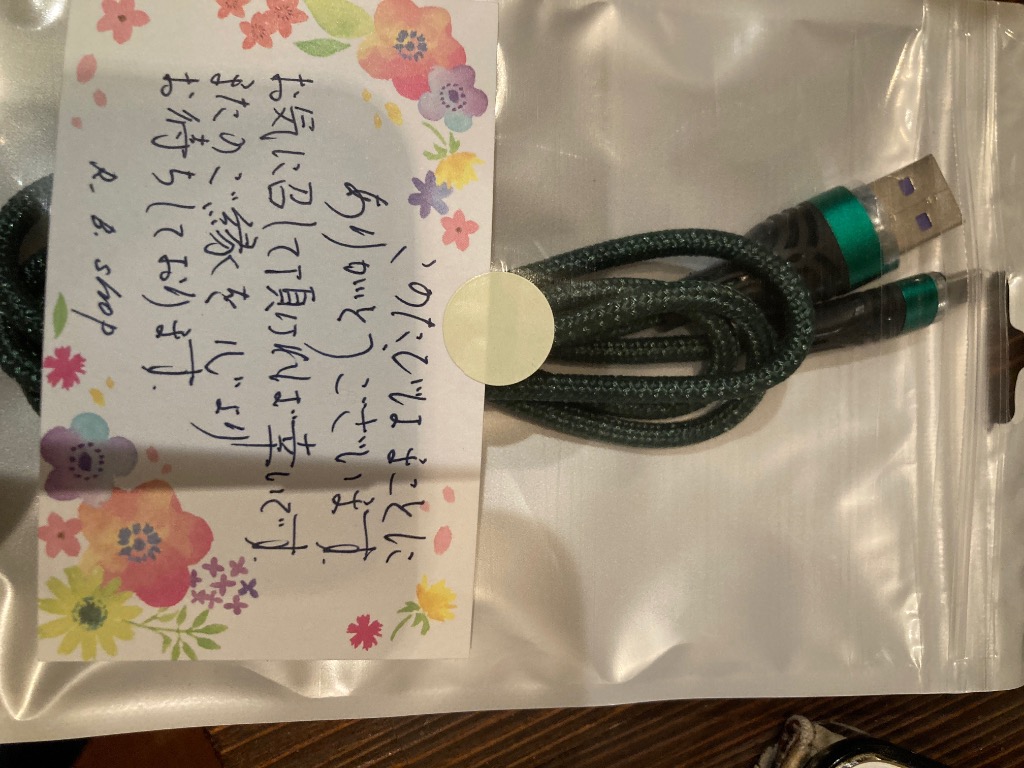 このたびはまことに
ありがとうございます.
お気に召して頂ければ幸いです.
またのご縁を心より
お待ちしております.
R. B. shop